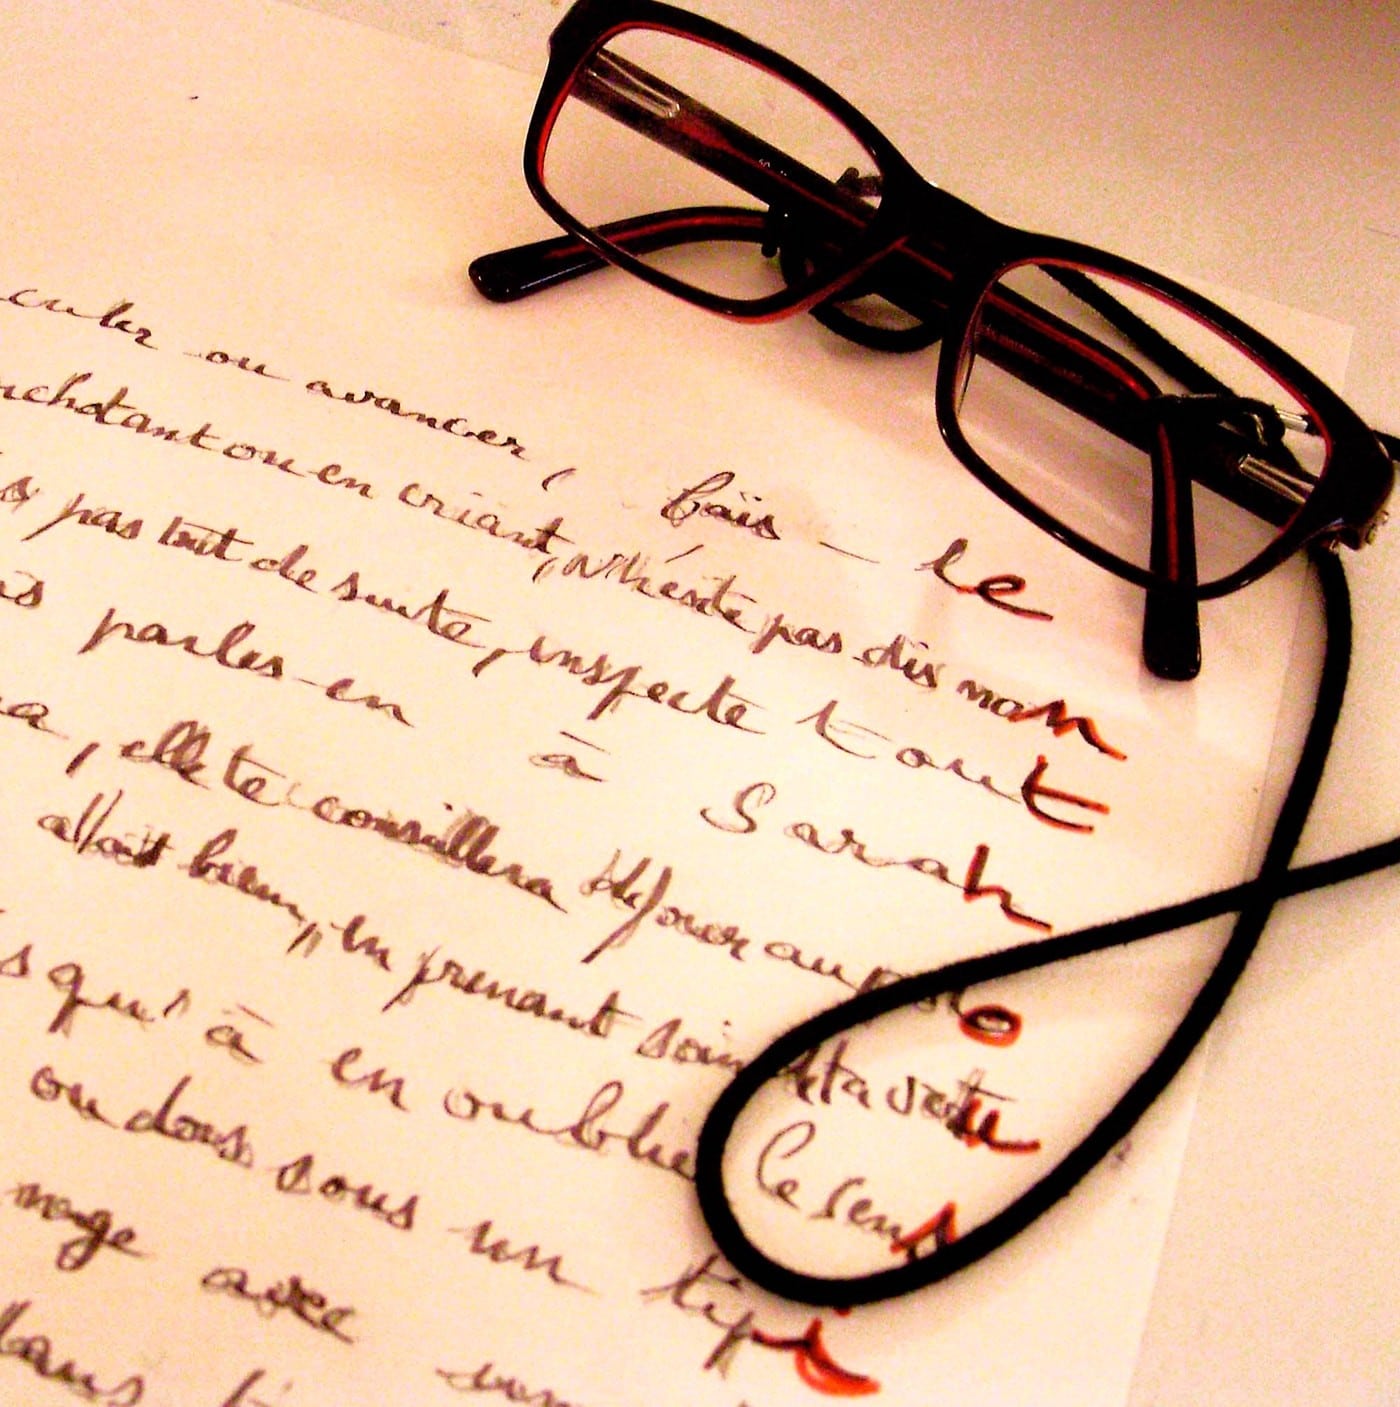 culer ou avancer, fais-le
uchotant ou en criant, n'hésite pas dis non
s pas tout de suite, inspecte tout
parles-en à Sarah
a, elle te conseillera de jouer au polo
allait bien, en prenant soin de ta veste
s qu'à en oublier le sens
ou dors sous un tipi
nage avec
dans